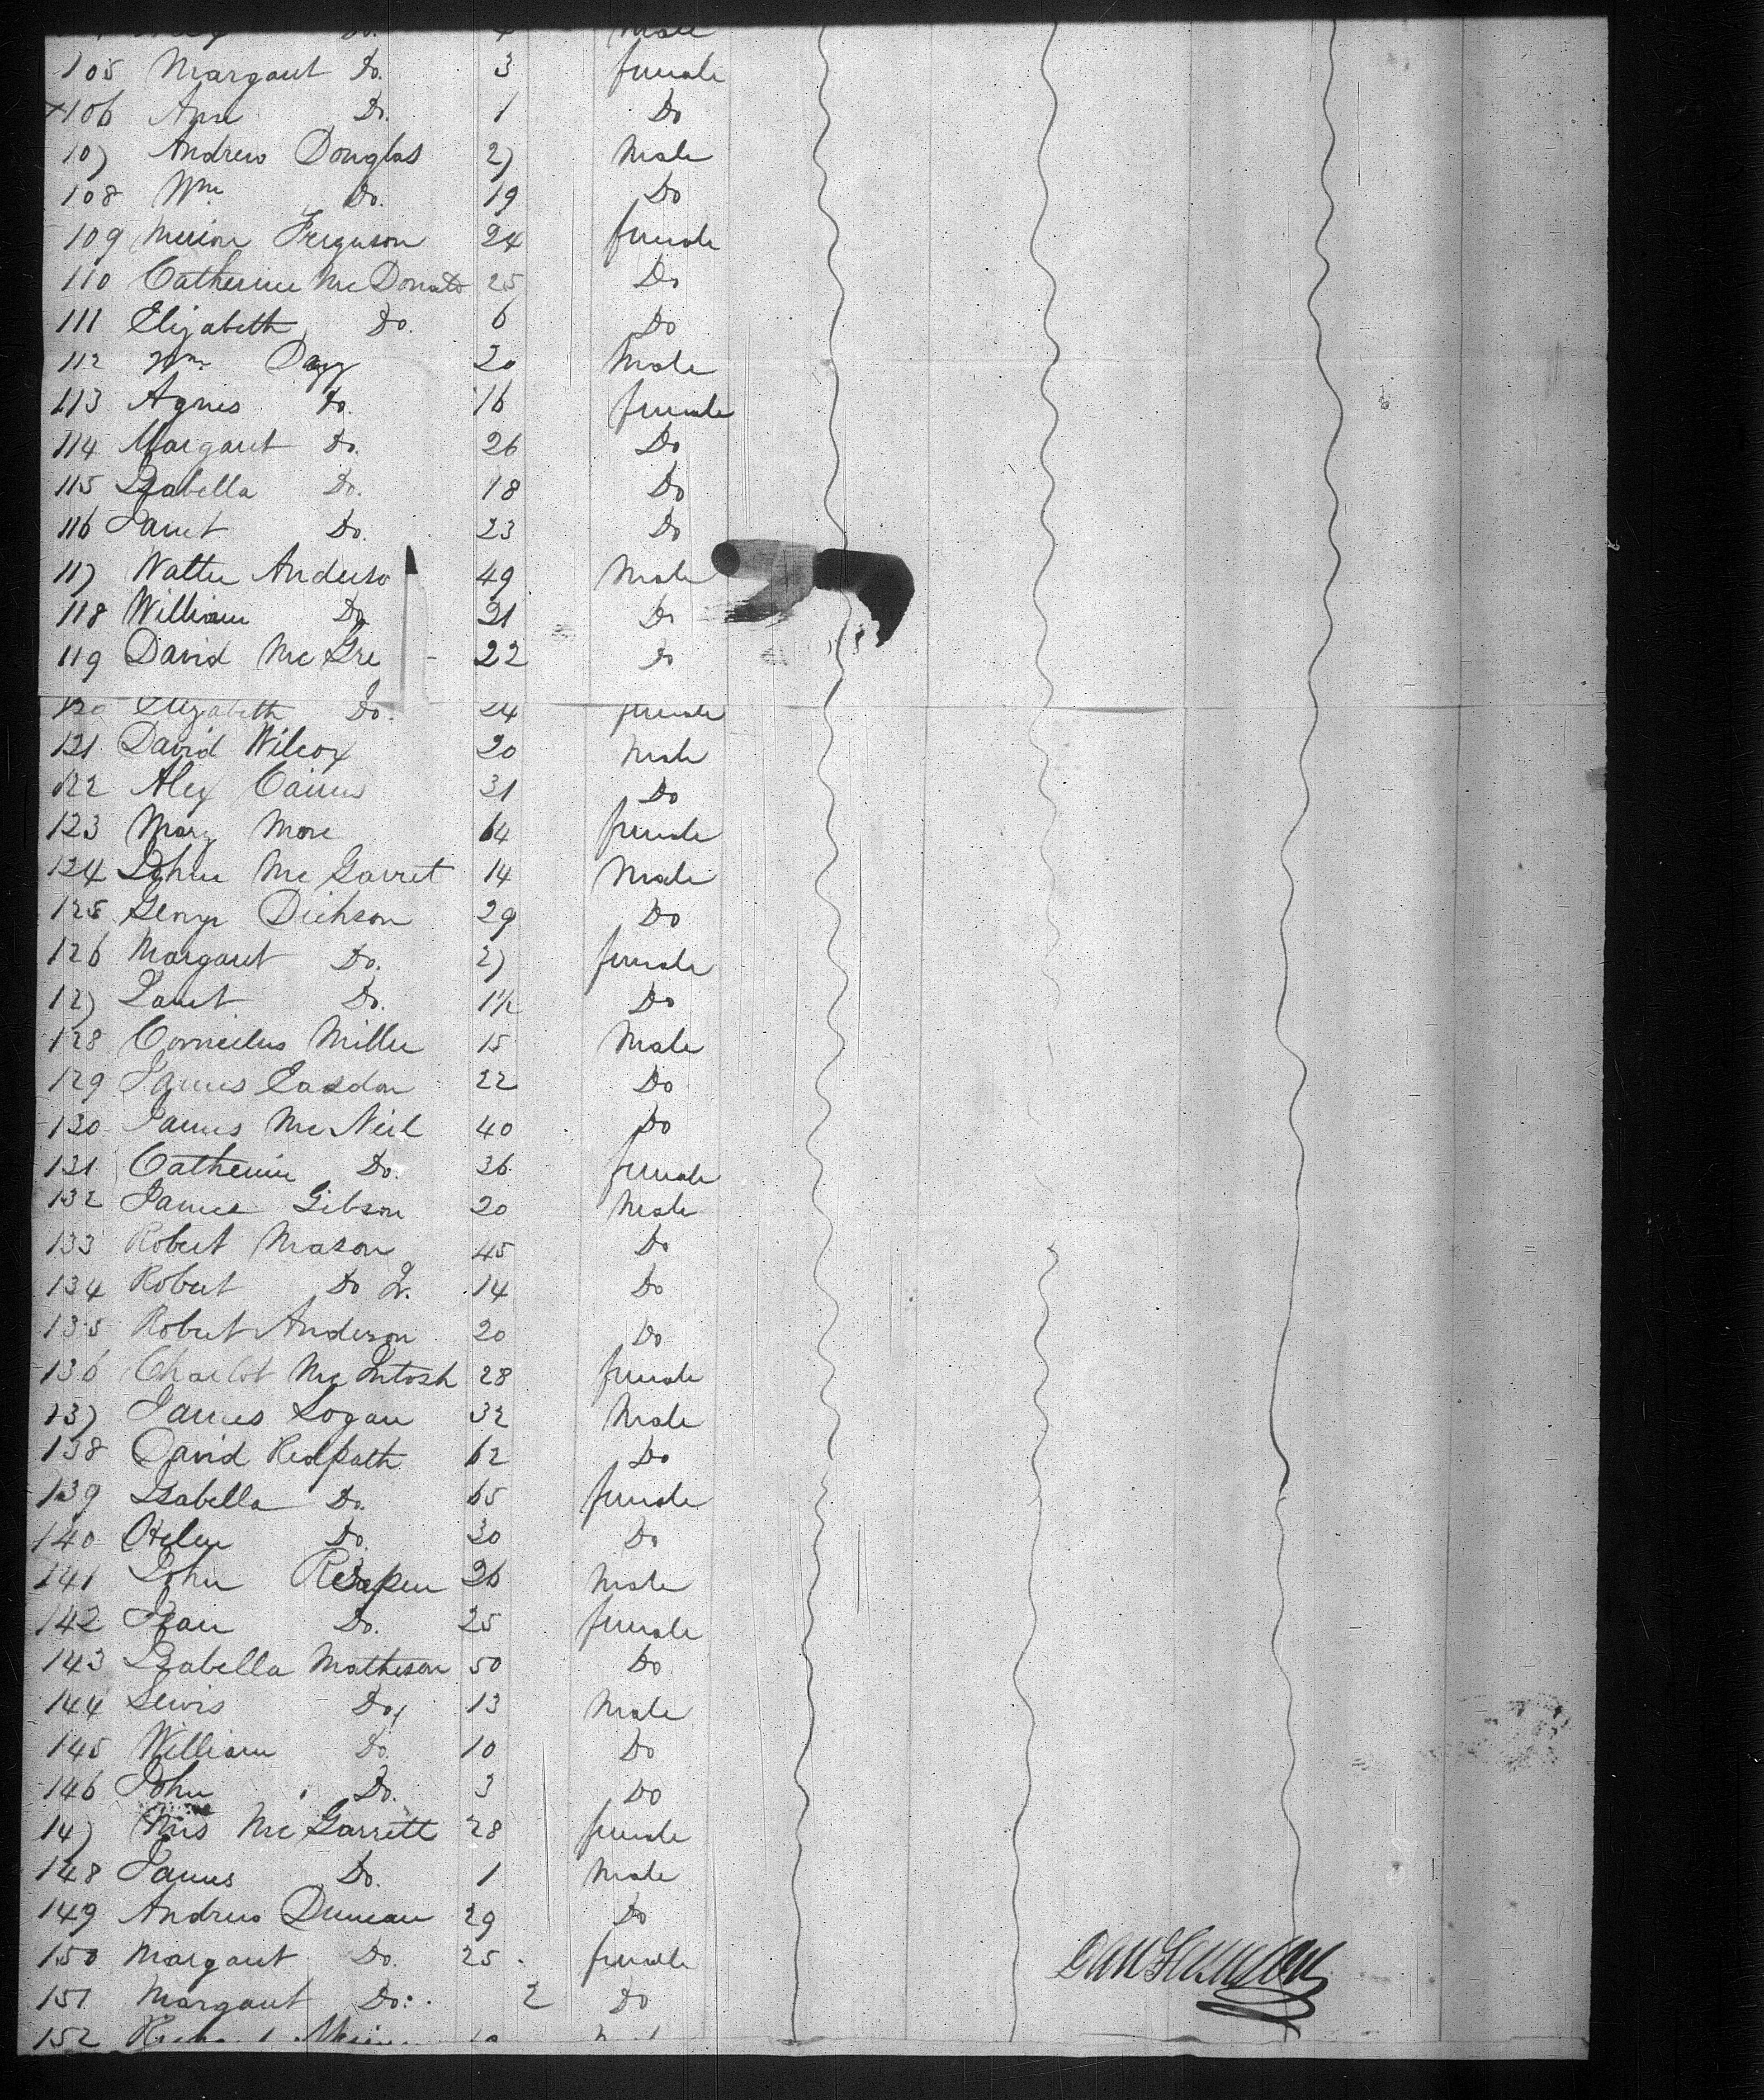 Do. 4 Male
105 Margaret Do. 3 female
106 Ann Do. 1 Do
107 Andrew Douglas 27 Male
108 Wm Do. 19 Do
109 Ferguson 24 female
110 Catherine McDonald 25 Do
111 Elizabeth Do. 6 Do
112 Wm Dagg 20 Male
113 Agnes Do. 16 female
114 Margaret Do. 26 Do
115 Isabella Do. 18 Do
116 Janet Do. 23 Do
117 Walter Anderso 49 Male
118 William Do 21 Do
119 David McGre 22 Do
120 Elizabeth Do. 24 female
121 David Wilcox 20 Male
122 Alex Cairns 31 Do
123 Mary More 64 female
124 John McGarret 14 Male
125 George Dickson 29 Do
126 Margaret Do. 27 female
127 Janet Do. 1½ Do
128 Cornielus Miller 15 Male
129 James Easdon 22 Do
130 James McNeil 40 Do
131 Catherine Do. 36 female
132 James Gibson 20 Male
133 Robert Mason 45 Do
134 Robert Do Jr. 14 Do
135 Robert Anderson 20 Do
136 Charlot McIntosh 28 female
137 James Logan 32 Male
138 David Redpath 62 Do
139 Isabella Do. 65 female
140 Helen Do. 30 Do
141 John 26 Male
142 Jean Do. 25 female
143 Isabella Matheson 50 Do
144 Lewis Do. 13 Male
145 William Do. 10 Do
146 John Do. 3 Do
147 Mrs McGarrett 28 female
148 James Do. 1 Male
149 Andrew Duncan 29 Do
150 Margaret Do. 25 female
151 Margaret Do. 2 Do
152